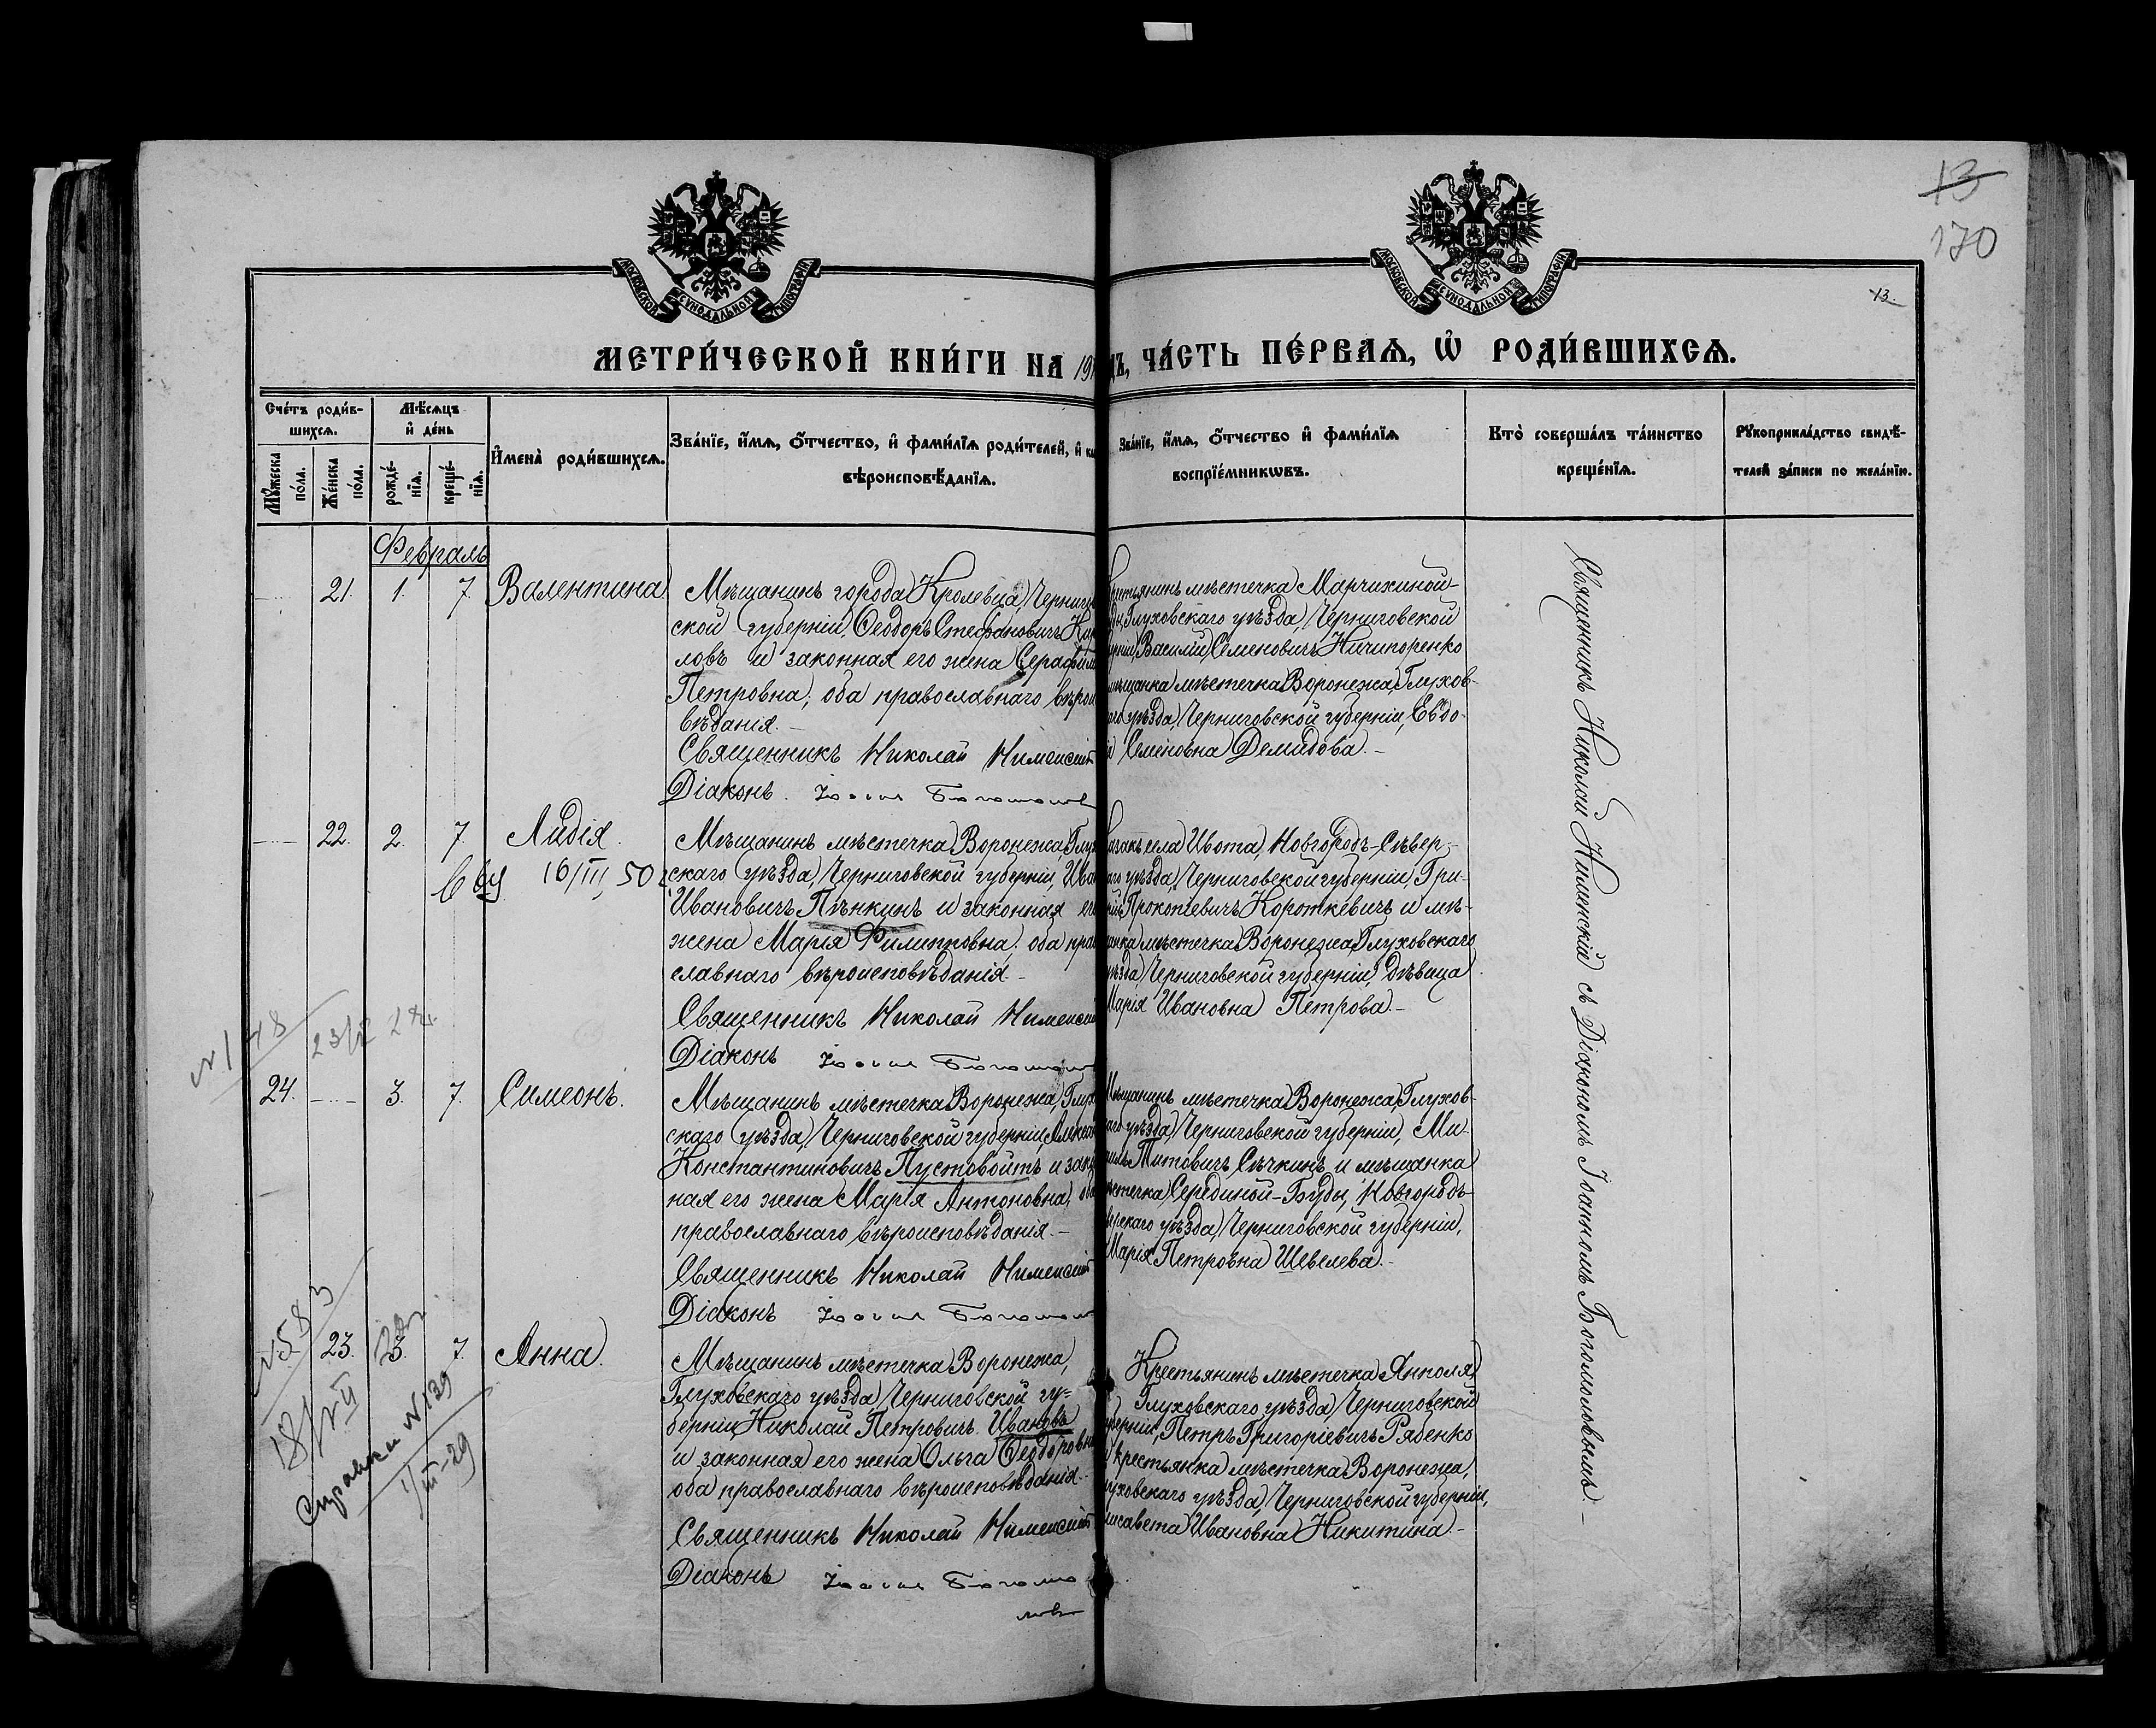 13
170
13.
МОСКОВСКОЙ СѴНОДАЛЬНОЙ ТИПОГРАФІИ
МОСКОВСКОЙ СѴНОДАЛЬНОЙ ТИПОГРАФІИ
МЕТРИ́ЧЕСКОЙ КНИ́ГИ НА 191
ДЪ, ЧА́СТЬ ПЕ́РВАѦ, Ѡ҆ РОДИ́ВШИХСѦ.
Сче́тъ роди́в-
шихсѧ.
Мꙋ́жеска по́ла.
Же́нска по́ла.
Мѣ́сѧцъ
и҆ де́нь
рожде́-
нїѧ.
креще́-
нїѧ.
И҆мена̀ роди́вшихсѧ.
Зва́нїе, и҆́мѧ, ѻ҆́тчество, и҆ фами́лїѧ роди́телей, и҆
вѣроисповѣ́данїѧ.
Зва́нїе, и҆́мѧ, ѻ҆́тчество и҆ фами́лїѧ
воспрїе́мникѡвъ.
Кто̀ соверша́лъ та́инство
креще́нїѧ.
Рꙋкоприкла́дство свидѣ́-
телей за́писи по жела́нїю.
Февраль
21. 1. 7. Валентина
Мѣщанинъ города Кролевца, Черниго
ской губерніи, Ѳеодоръ Стефановичъ Ки
ловъ и законная его жена Серафим
Петровна; оба православнаго вѣрои
вѣданія.-
Священникъ Николай Нименскій
Діаконъ. Іоаннъ Богомолов
естьянинъ мѣстечка Марчихиной-
ды, Глуховскаго уѣзда, Черниговской
рніи, Василій Семеновичъ Ничипоренко
мѣщанка мѣстечка Воронежа, Глухов-
аго уѣзда, Черниговской губерніи, Евдо-
Семеновна Демидова.-
22. 2. 7. Лидія.
16/III, 50
Мѣщанинъ мѣстечка Воронежа, Глух
скаго уѣзда, Черниговской губерніи, Иван
Ивановичъ Пѣнкинъ и законная его
жена Марія Филипповна; оба прав
славнаго вѣроисповѣданія-
Священникъ Николай Нименскій
Діаконъ Іоаннъ Богомолов
азакъ села Ивота, Новгородъ-Сѣвер-
аго уѣзда, Черниговской губерніи, Гри-
рій Прокопіевичъ Короткевичъ и мѣ-
анка мѣстечка Воронежа, Глуховскаго
ѣзда, Черниговской губерніи, дѣвица
Марія Ивановна Петрова.-
24. 3. 7. Симеонъ.
Мѣщанинъ мѣстечка Воронежа, Глух
скаго уѣзда, Черниговской губерніи, Алексан
Константиновичъ Пустовойтъ и зако
ная его жена Марія Антоновна, оба
православнаго вѣроисповѣданія.-
Священникъ Николай Нименскій
Діаконъ Іоаннъ Богомолов
Мѣщанинъ мѣстечка Воронежа, Глухов-
аго уѣзда, Черниговской губерніи, Ми-
илъ Титовичъ Сѣчкинъ и мѣщанка
мѣстечка Середино́й-Буды, Новгородъ-
верскаго уѣзда, Черниговской губерніи,
Марія Петровна Шевелева.-
N583
18/VII
Справка N139
1/III-29
23. 5. 7. Анна.
Мѣщанинъ мѣстечка Воронежа,
Глуховскаго уѣзда, Черниговской гу-
берніи, Николай Петровичъ Ивановъ
и законная его жена Ольга Ѳеодоровна
оба православнаго вѣроисповѣданія.-
Священникъ Николай Нименскій
Діаконъ Іоаннъ Богомо
ловъ
Крестьянинъ мѣстечка Янполя,
Глуховскаго уѣзда, Черниговской
уберніи, Петръ Григоріевичъ Рябенко
и крестьянка мѣстечка Воронежа,
луховскаго уѣзда, Черниговской губерніи,
лисавета Ивановна Никитина.-
Священникъ Николай Нименскій съ Діакономъ Іоанномъ Богомоловымъ.-